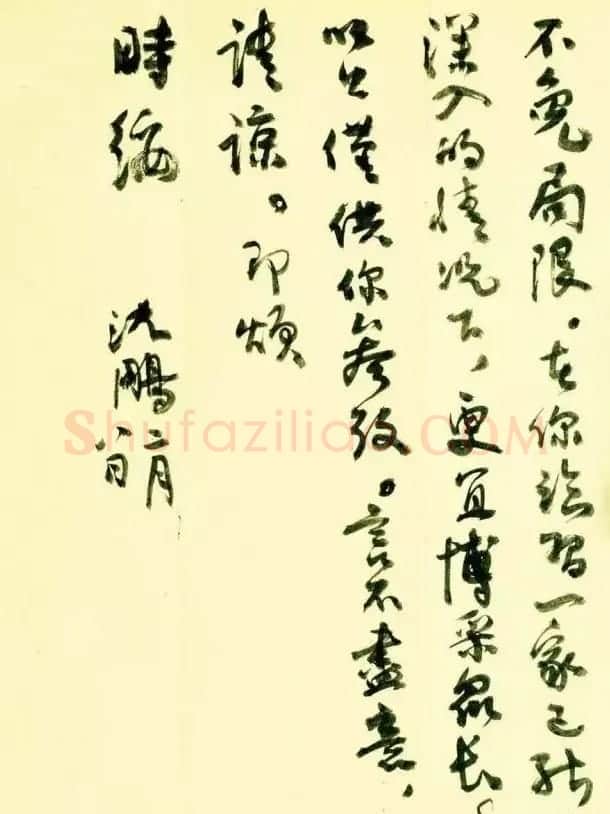 不免局限。在你临习一家已能
深入的情况下，更宜博采众长。
以上仅供你参考。言不尽意，
请谅。即颂
時绥
沈鹏 二月
八日
Shufaziliao.COM